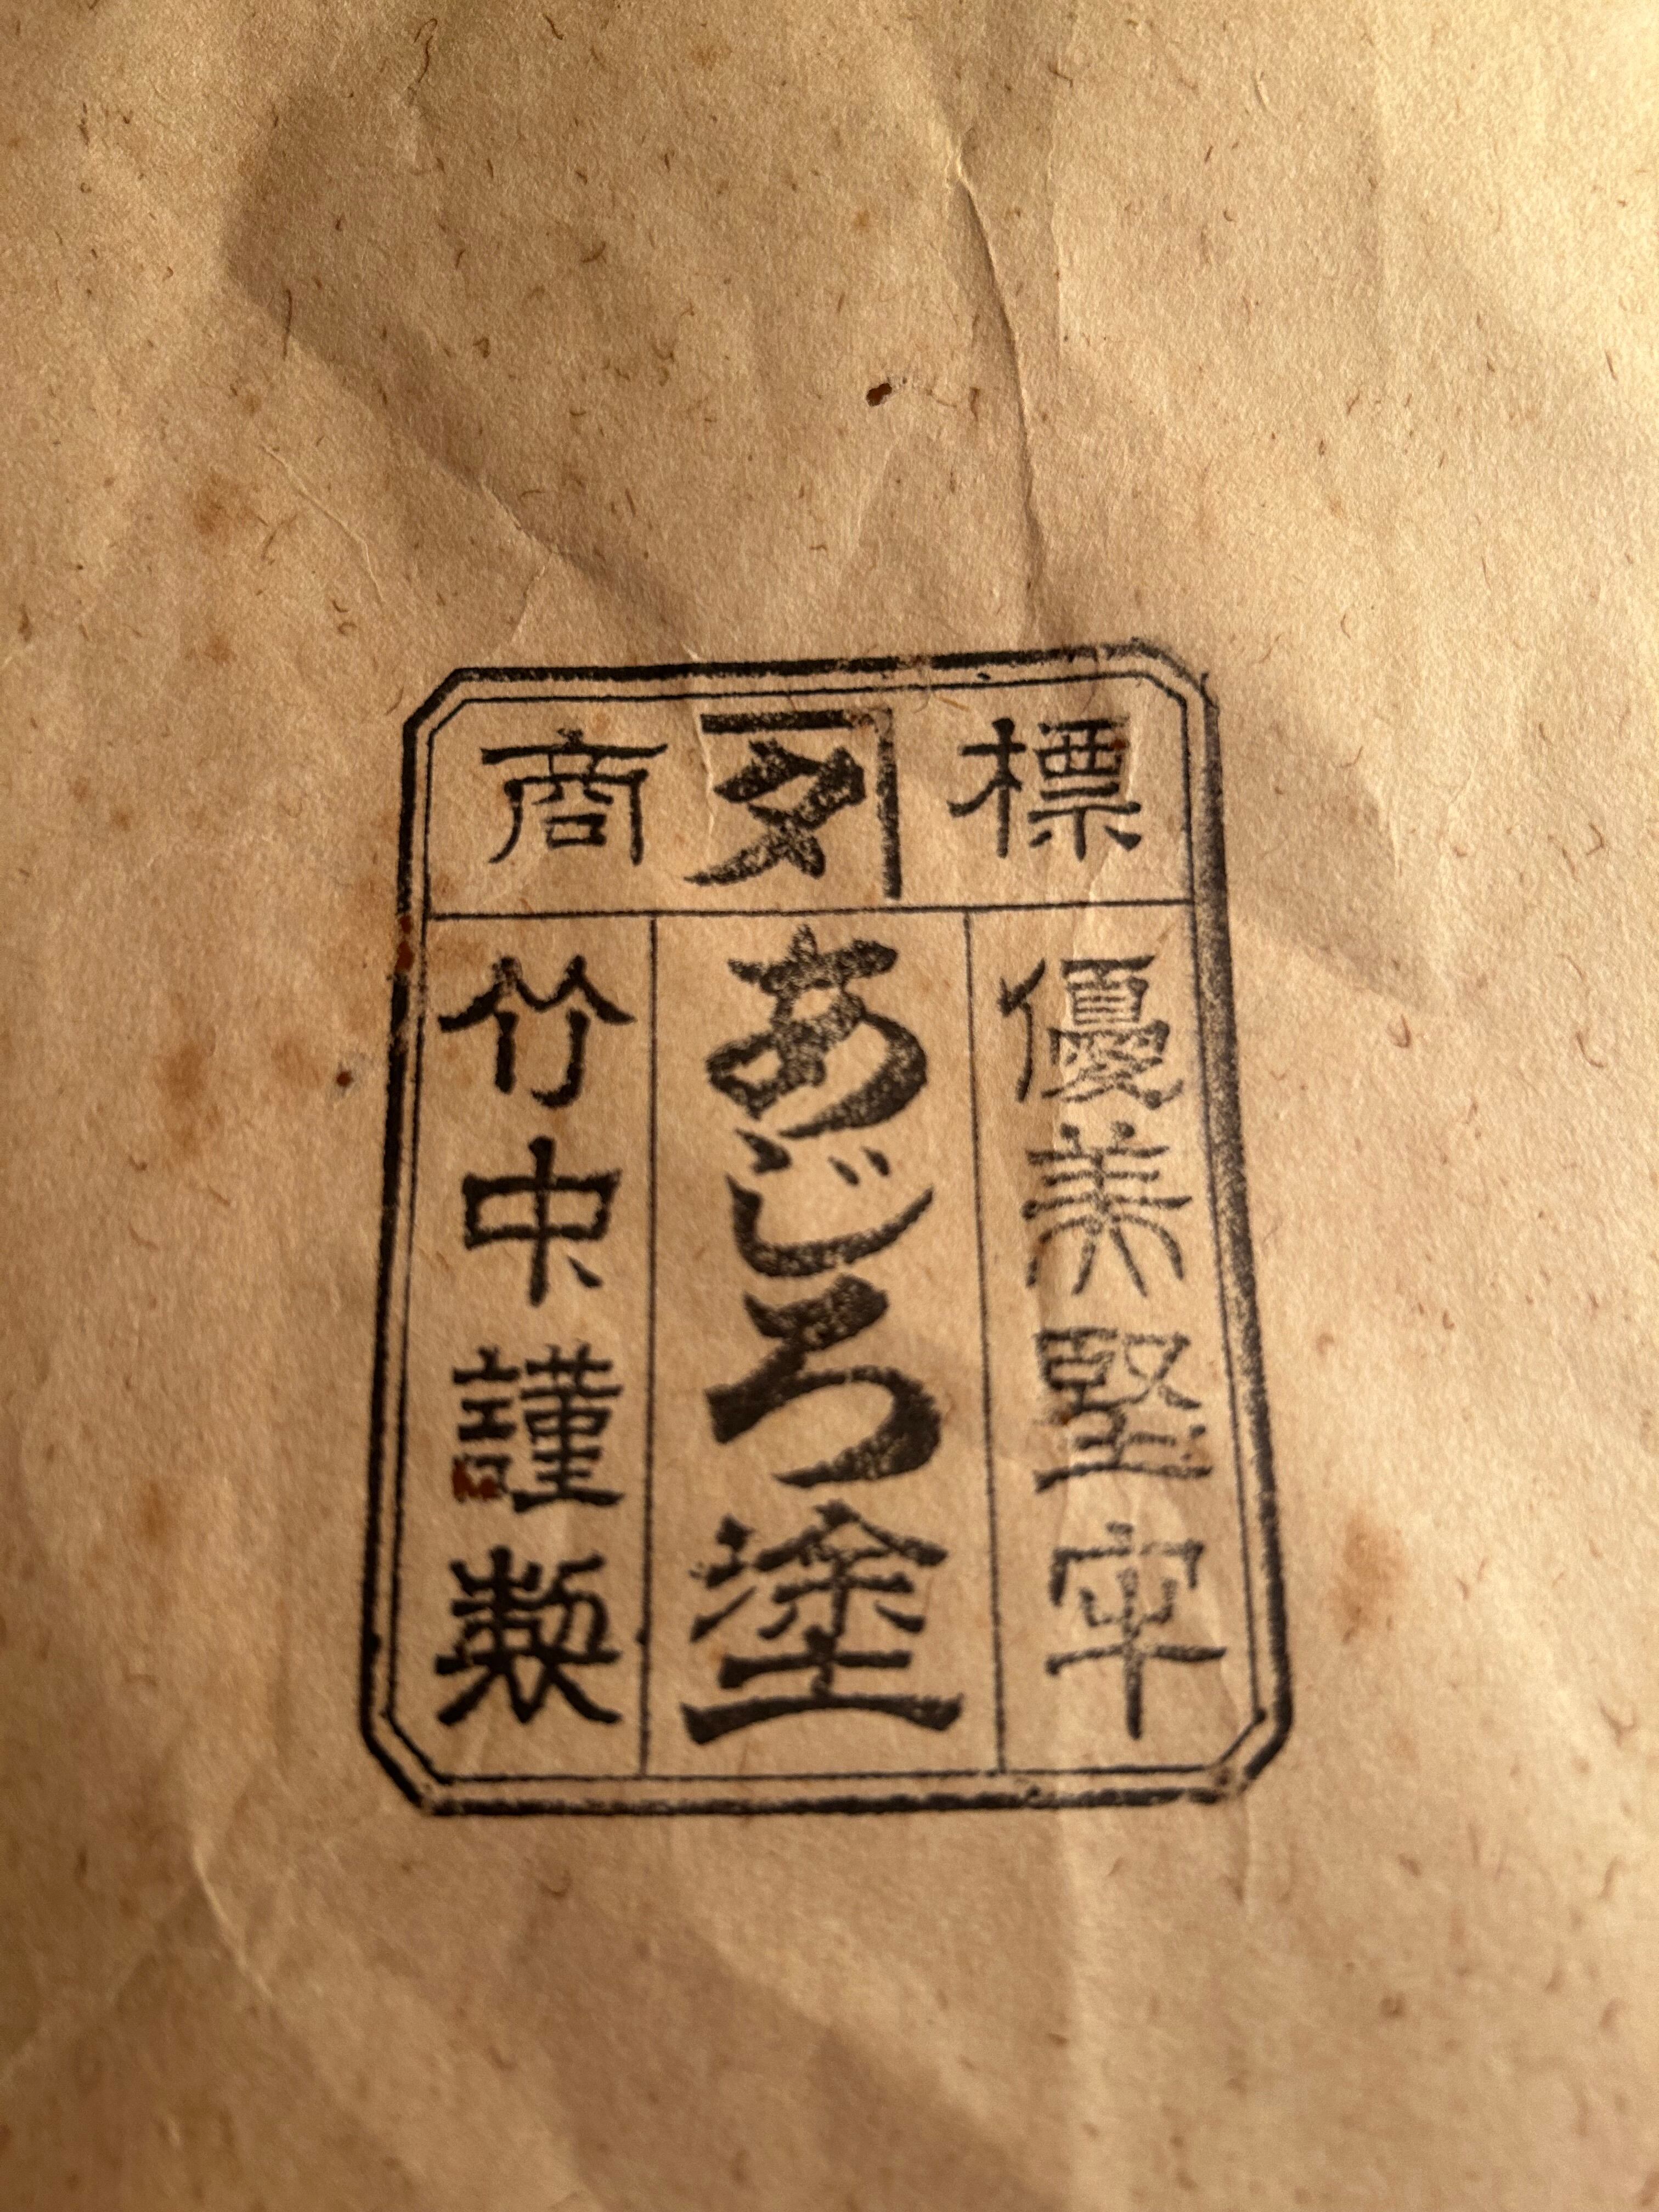 商標
優美堅牢
あじろ塗
竹中謹製